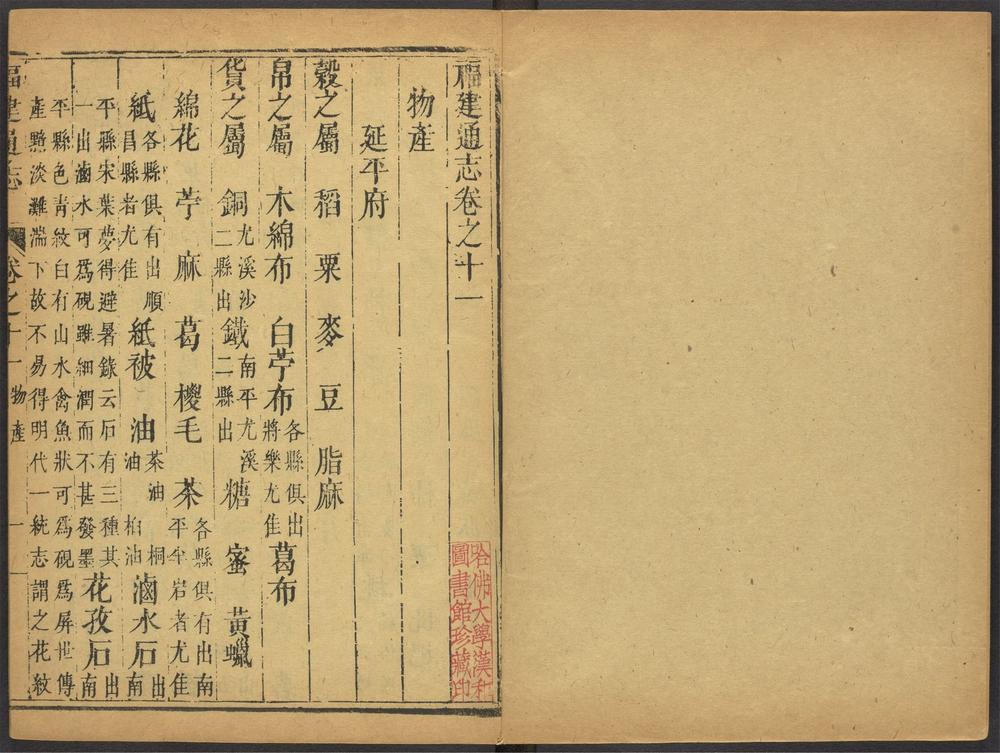 福建通志卷之十一
哈佛大學漢和
圖書館珍藏印
物產
延平府
穀之屬 稻 粟 麥 豆 脂麻
帛之屬 木綿布 白苧布 各縣俱出將樂尤佳 葛布
貨之屬 銅 尤溪沙二縣出 鐵 南平尤溪二縣出 糖 蜜 黃蠟
綿花 苧 麻 葛 椶毛 茶 各縣俱有出南平半岩者尤佳
紙 各縣俱有出順昌縣者尤佳 紙被 油 茶油桐油柏油 滷水石 出南
平縣宋葉夢得避暑錄云石有三種其一出滷水可爲硯雖細潤而不甚發墨 花孜石 出南
平縣色青紋白有山水禽魚狀可爲硯爲屏世傳產黯淡灘湍下故不易得明代一統志謂之花紋
福建通志 卷之十一 物產 一